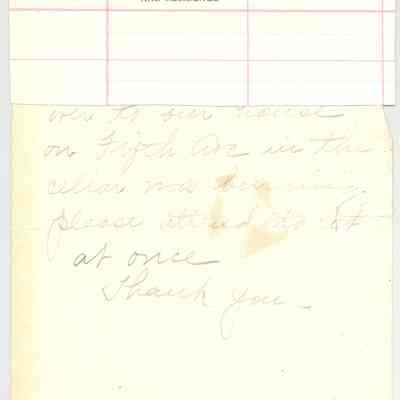 over to our house
on Fifth Ave in the
cellar
please attend to it
at once
Thank you